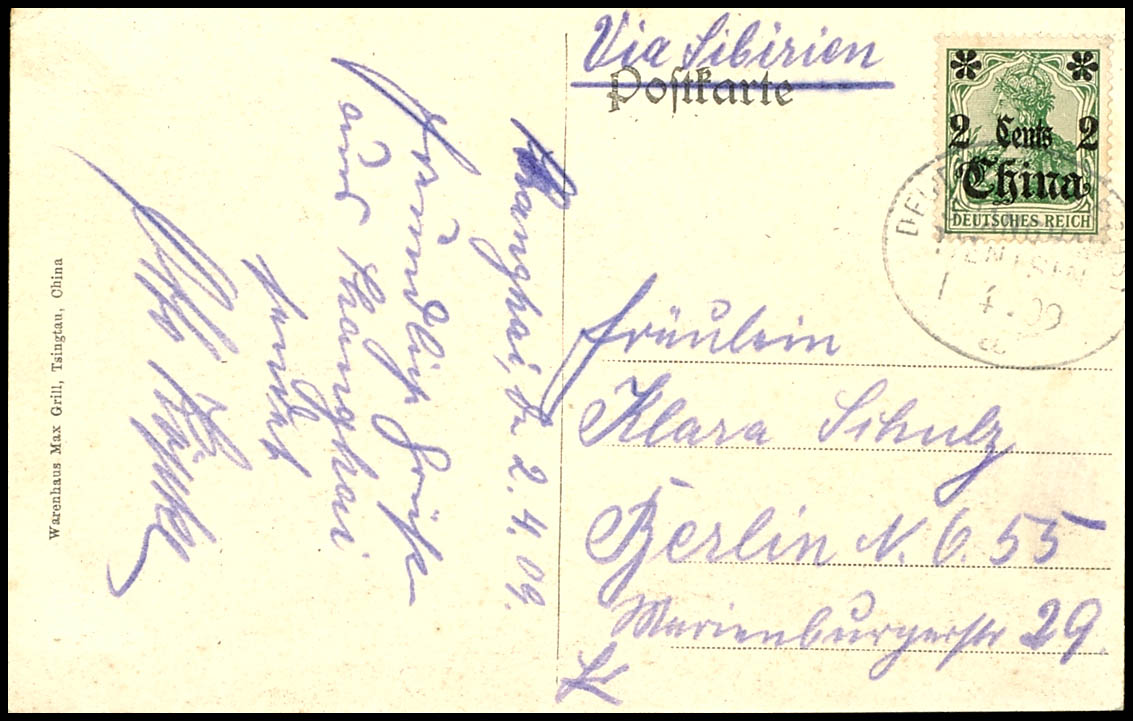 Via Sibirien
Postkarte
2 Cents 2
China
DEUTSCHES REICH
TIENTSIN
4
09
a
Shanghai, d. 2. 4. 09.
Freundliche Grüße
aus Shanghai
sendet
Otto
Fräulein
Klara Schulz
Berlin N. O. 55
Marienburgerstr 29.
Warenhaus Max Grill, Tsingtau, China